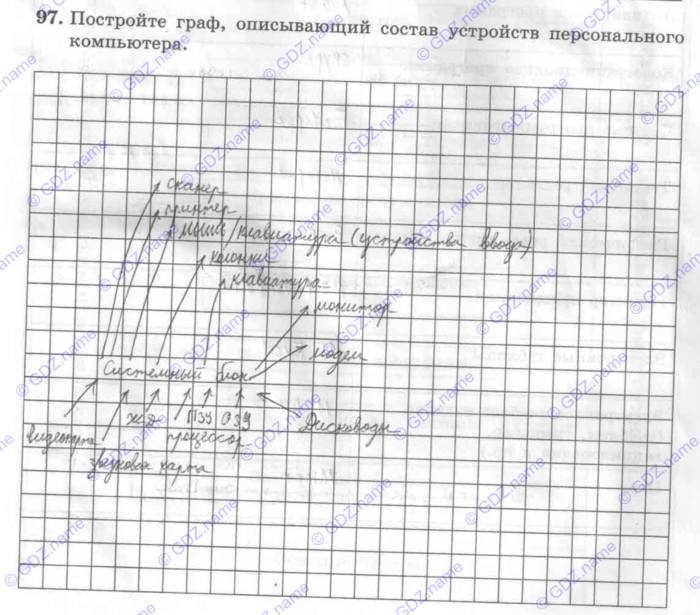 97. Постройте граф, описывающий состав устройств персонального
компьютера.
сканер
принтер
мышь/клавиатура (устройства ввода)
колонки
клавиатура
монитор
модем
Системный блок
ЖД ПЗУ ОЗУ Дисководы
видеокарта процессор
звуковая карта
© GDZ.name